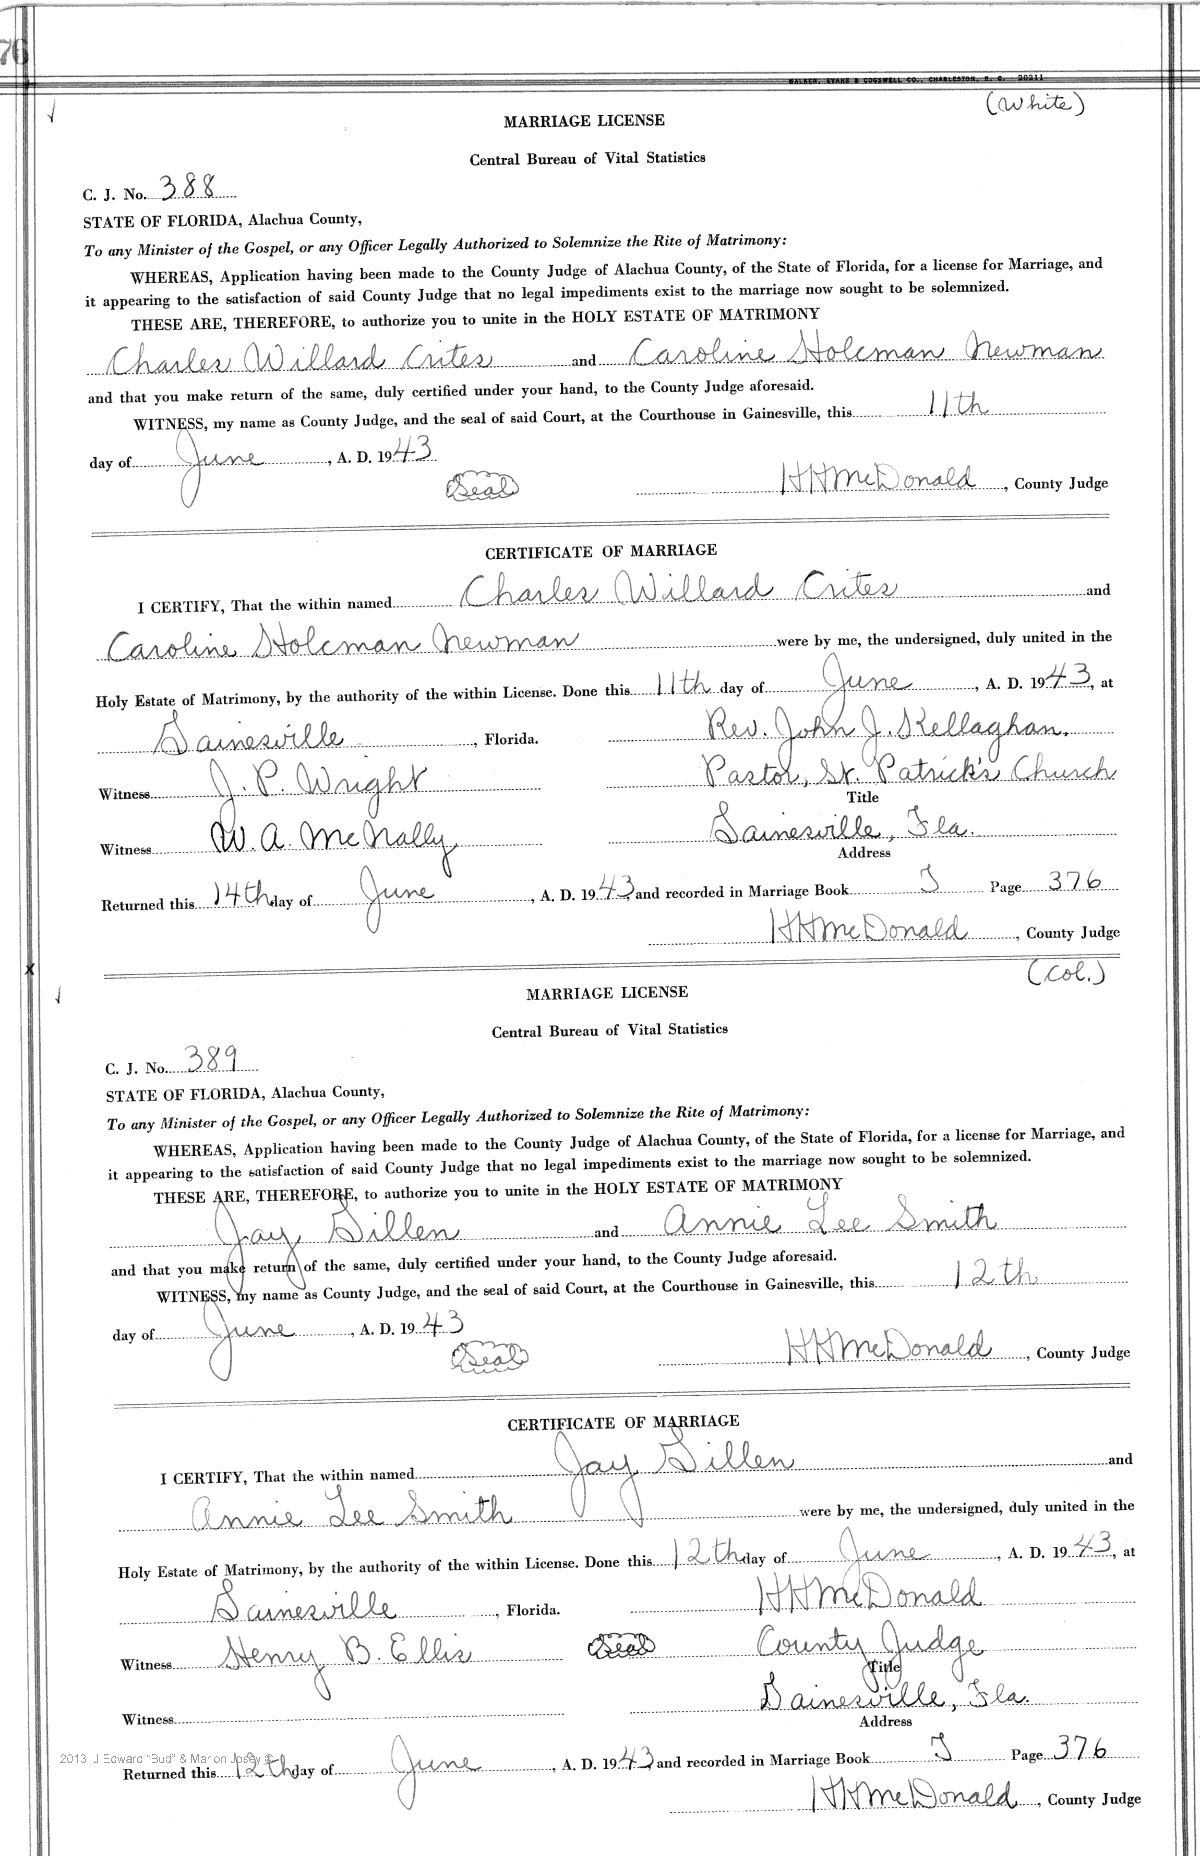 76
WALKER, EVANS & COGSWELL CO., CHARLESTON, S. C. 20211
(White)
MARRIAGE LICENSE
Central Bureau of Vital Statistics
C. J. No. 388
STATE OF FLORIDA, Alachua County,
To any Minister of the Gospel, or any Officer Legally Authorized to Solemnize the Rite of Matrimony:
WHEREAS, Application having been made to the County Judge of Alachua County, of the State of Florida, for a license for Marriage, and
it appearing to the satisfaction of said County Judge that no legal impediments exist to the marriage now sought to be solemnized.
THESE ARE, THEREFORE, to authorize you to unite in the HOLY ESTATE OF MATRIMONY
Charles Willard Crites and Caroline Holcman Newman
and that you make return of the same, duly certified under your hand, to the County Judge aforesaid.
WITNESS, my name as County Judge, and the seal of said Court, at the Courthouse in Gainesville, this 11th
day of June, A. D. 1943
Seal HHMcDonald, County Judge
CERTIFICATE OF MARRIAGE
I CERTIFY, That the within named Charles Willard Crites and
Caroline Holcman Newman were by me, the undersigned, duly united in the
Holy Estate of Matrimony, by the authority of the within License. Done this 11th day of June, A. D. 1943, at
Gainesville, Florida. Rev. John J. Kellaghan.
Witness J. P. Wright Pastor, St. Patrick's Church
Title
Witness W. A. McNally Gainesville, Fla.
Address
Returned this 14th day of June, A. D. 1943, and recorded in Marriage Book J Page 376
HHMcDonald, County Judge
x
(Col.)
MARRIAGE LICENSE
Central Bureau of Vital Statistics
C. J. No. 389
STATE OF FLORIDA, Alachua County,
To any Minister of the Gospel, or any Officer Legally Authorized to Solemnize the Rite of Matrimony:
WHEREAS, Application having been made to the County Judge of Alachua County, of the State of Florida, for a license for Marriage, and
it appearing to the satisfaction of said County Judge that no legal impediments exist to the marriage now sought to be solemnized.
THESE ARE, THEREFORE, to authorize you to unite in the HOLY ESTATE OF MATRIMONY
Jay Gillen and Annie Lee Smith
and that you make return of the same, duly certified under your hand, to the County Judge aforesaid.
WITNESS, my name as County Judge, and the seal of said Court, at the Courthouse in Gainesville, this 12th
day of June, A. D. 1943
Seal HHMcDonald, County Judge
CERTIFICATE OF MARRIAGE
I CERTIFY, That the within named Jay Gillen and
Annie Lee Smith were by me, the undersigned, duly united in the
Holy Estate of Matrimony, by the authority of the within License. Done this 12th day of June, A. D. 1943, at
Gainesville, Florida. HHMcDonald
Witness Henry B. Ellis Seal County Judge
Title
Gainesville, Fla.
Witness Address
2013 J Edward "Bud" & Marion Josey
Returned this 12th day of June, A. D. 1943 and recorded in Marriage Book J Page 376
HHMcDonald, County Judge